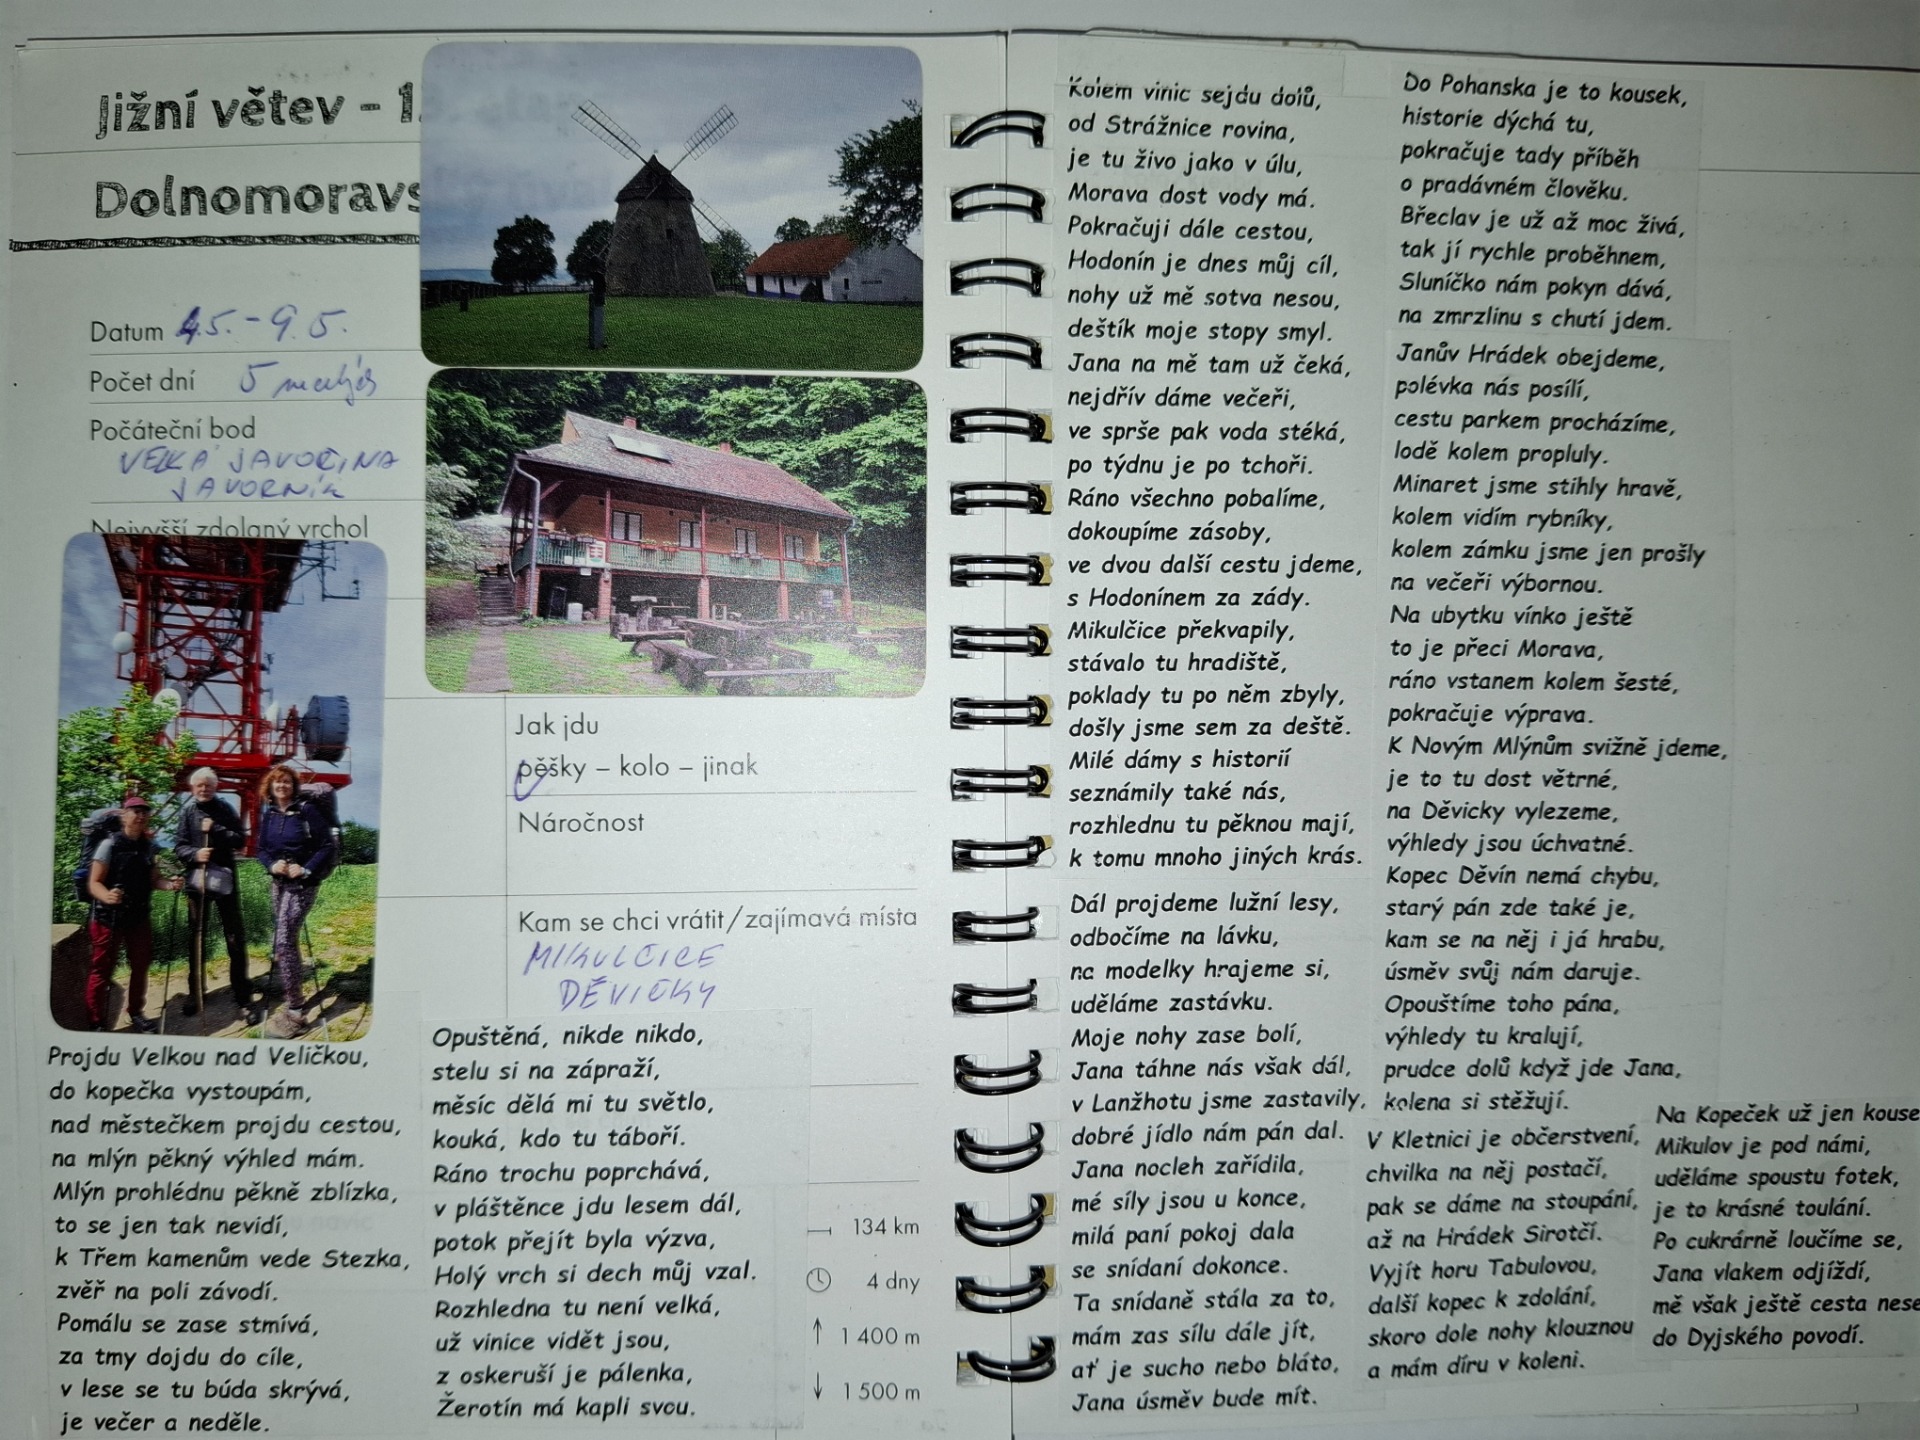 Jižní větev - 1.
Dolnomoravs
Datum 4.5. - 9.5.
Počet dní 5
Počáteční bod
VELKÁ JAVOŘINA
JAVORNÍK
Nejvyšší zdolaný vrchol
Jak jdu
pěšky – kolo – jinak
Náročnost
Kam se chci vrátit/zajímavá místa
MIKULČICE
DĚVIČKY
134 km
4 dny
1 400 m
1 500 m
Projdu Velkou nad Veličkou,
do kopečka vystoupám,
nad městečkem projdu cestou,
na mlýn pěkný výhled mám.
Mlýn prohlédnu pěkně zblízka,
to se jen tak nevidí,
k Třem kamenům vede Stezka,
zvěř na poli závodí.
Pomálu se zase stmívá,
za tmy dojdu do cíle,
v lese se tu búda skrývá,
je večer a neděle.
Opuštěná, nikde nikdo,
stelu si na zápraží,
měsíc dělá mi tu světlo,
kouká, kdo tu táboří.
Ráno trochu poprchává,
v pláštěnce jdu lesem dál,
potok přejít byla výzva,
Holý vrch si dech můj vzal.
Rozhledna tu není velká,
už vinice vidět jsou,
z oskeruší je pálenka,
Žerotín má kapli svou.
Kolem vinic sejdu dolů,
od Strážnice rovina,
je tu živo jako v úlu,
Morava dost vody má.
Pokračuji dále cestou,
Hodonín je dnes můj cíl,
nohy už mě sotva nesou,
deštík moje stopy smyl.
Jana na mě tam už čeká,
nejdřív dáme večeři,
ve sprše pak voda stéká,
po týdnu je po tchoři.
Ráno všechno pobalíme,
dokoupíme zásoby,
ve dvou další cestu jdeme,
s Hodonínem za zády.
Mikulčice překvapily,
stávalo tu hradiště,
poklady tu po něm zbyly,
došly jsme sem za deště.
Milé dámy s historií
seznámily také nás,
rozhlednu tu pěknou mají,
k tomu mnoho jiných krás.
Dál projdeme lužní lesy,
odbočíme na lávku,
na modelky hrajeme si,
uděláme zastávku.
Moje nohy zase bolí,
Jana táhne nás však dál,
v Lanžhotu jsme zastavily,
dobré jídlo nám pán dal.
Jana nocleh zařídila,
mé síly jsou u konce,
milá paní pokoj dala
se snídaní dokonce.
Ta snídaně stála za to,
mám zas sílu dále jít,
ať je sucho nebo bláto,
Jana úsměv bude mít.
Do Pohanska je to kousek,
historie dýchá tu,
pokračuje tady příběh
o pradávném člověku.
Břeclav je už až moc živá,
tak jí rychle proběhnem,
Sluníčko nám pokyn dává,
na zmrzlinu s chutí jdem.
Janův Hrádek obejdeme,
polévka nás posílí,
cestu parkem procházíme,
lodě kolem propluly.
Minaret jsme stihly hravě,
kolem vidím rybníky,
kolem zámku jsme jen prošly
na večeři výbornou.
Na ubytku vínko ještě
to je přeci Morava,
ráno vstanem kolem šesté,
pokračuje výprava.
K Novým Mlýnům svižně jdeme,
je to tu dost větrné,
na Děvicky vylezeme,
výhledy jsou úchvatné.
Kopec Děvín nemá chybu,
starý pán zde také je,
kam se na něj i já hrabu,
úsměv svůj nám daruje.
Opouštíme toho pána,
výhledy tu kralují,
prudce dolů když jde Jana,
kolena si stěžují.
V Kletnici je občerstvení,
chvilka na něj postačí,
pak se dáme na stoupání,
až na Hrádek Sirotčí.
Vyjít horu Tabulovou,
další kopec k zdolání,
skoro dole nohy klouznou
a mám díru v koleni.
Na Kopeček už jen kouse
Mikulov je pod námi,
uděláme spoustu fotek,
je to krásné toulání.
Po cukrárně loučíme se,
Jana vlakem odjíždí,
mě však ještě cesta nese
do Dyjského povodí.